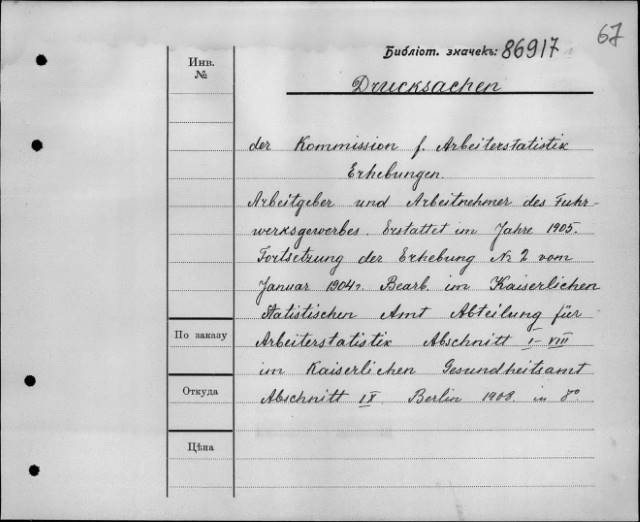 67
Библіот. значекъ: 86917
Инв.
№
Drucksachen
der Kommission f. Arbeiterstatistik
Erhebungen.
Arbeitgeber und Arbeitnehmer des Fuhr-
werksgewerbes. Erstattet im Jahre 1905.
Fortsetzung der Erhebung № 2 vom
Januar 1904 г. Bearb. im Kaiserlichen
Statistischen Amt Abteilung für
По заказу
Arbeiterstatistik Abschnitt I-VIII
im Kaiserlichen Gesundheitsamt
Откуда
Abschnitt IX. Berlin 1908. in 8°
Цѣна